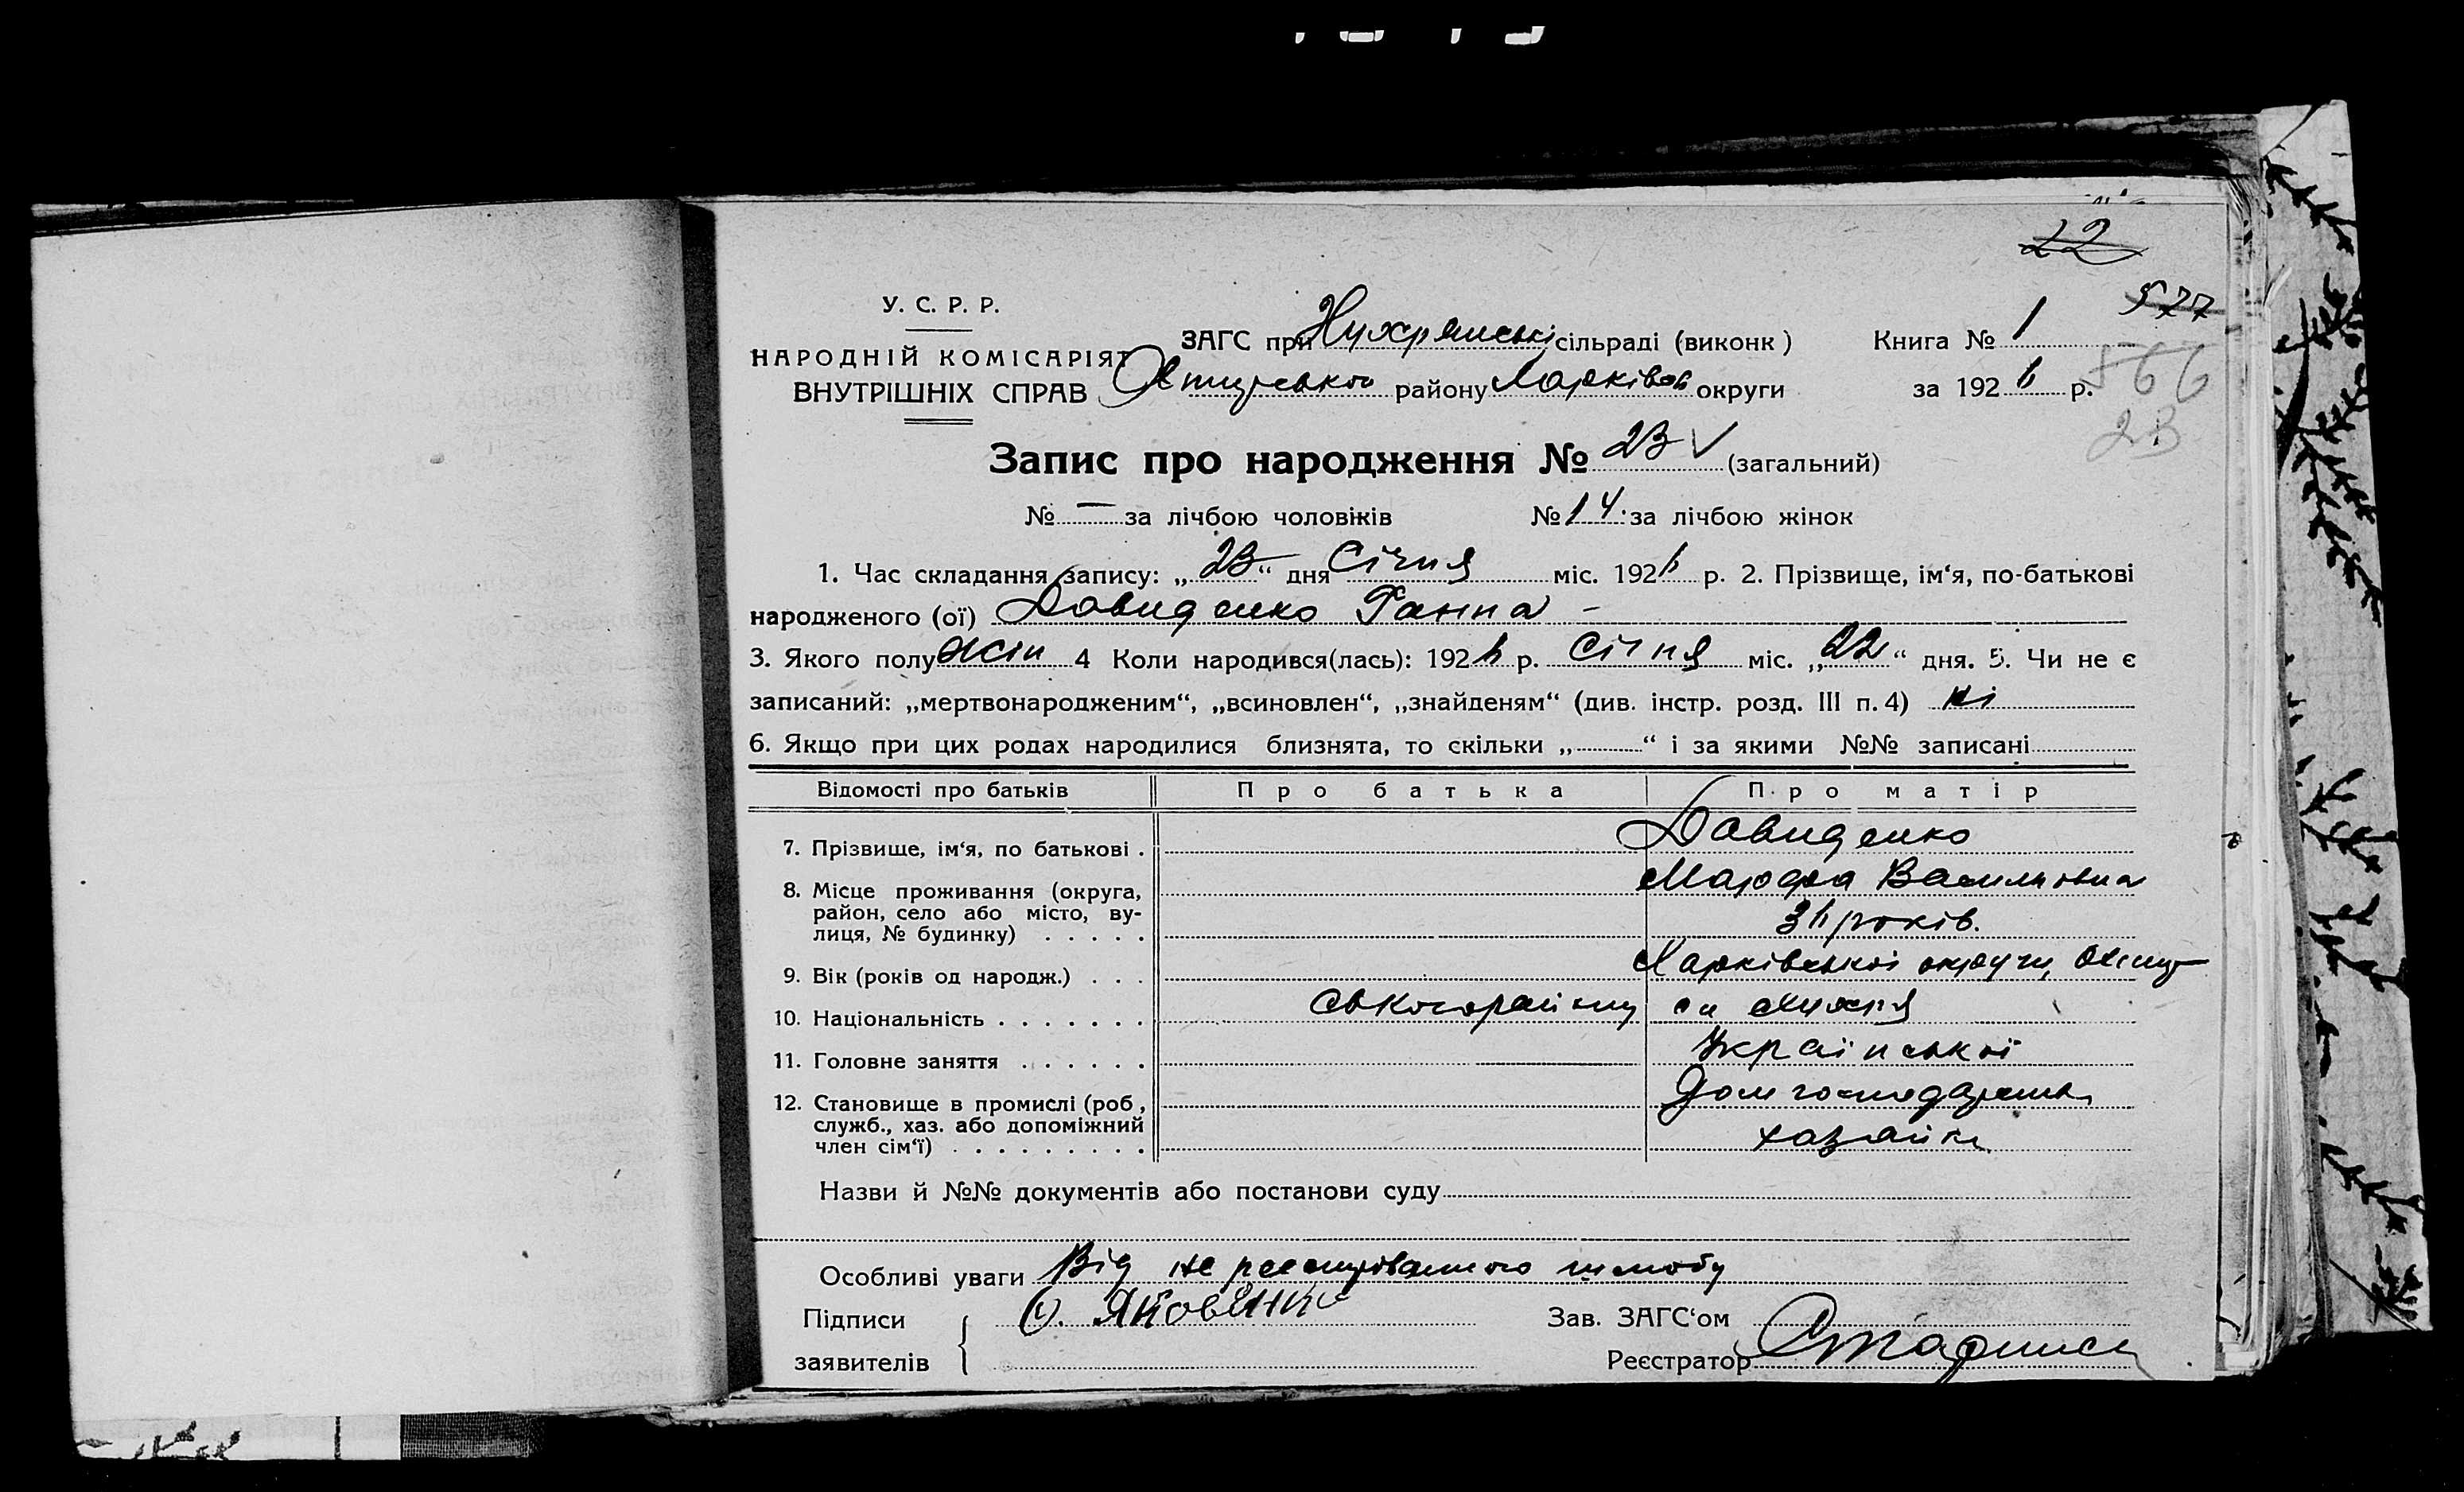 22
У. С. Р. Р.
577
ЗАГС при сільраді (виконк) Книга № 1
НАРОДНІЙ КОМІСАРІЯТ
566
ВНУТРІШНІХ СПРАВ району Харківськ округи за 1926 р.
23
Запис про народження № 23 ✓ (загальний)
№ — за лічбою чоловіків № 14. за лічбою жінок
1. Час складання запису: „23“ дня Січня міс. 1926 р. 2. Прізвище, ім‘я, по-батькові
народженого (ої) Давиденко Ганна –
3. Якого полу жін 4 Коли народився(лась): 1926 р. Січня міс. „22“ дня. 5. Чи не є
записаний: „мертвонародженим“, „всиновлен“, „знайденям“ (див. інстр. розд. III п. 4) ні
6. Якщо при цих родах народилися близнята, то скільки „ “ і за якими №№ записані
Відомості про батьків Про батька Про матір
7. Прізвище, ім‘я, по батькові . Давиденко
8. Місце проживання (округа, Марфа Василівна
район, село або місто, ву-
лиця, № будинку) . . . . . 36 років.
9. Вік (років од народж.) . . . Харківської округи,
10. Національність . . . . . . . ського району
11. Головне заняття . . . . . . Української
12. Становище в промислі (роб, Дом господарств
служб., хаз. або допоміжний
член сім‘ї) . . . . . . . . . хазяйка
Назви й №№ документів або постанови суду
Особливі уваги Від не реєстрованого шлюбу
Підписи Яковенко Зав. ЗАГС‘ом
заявителів Реєстратор